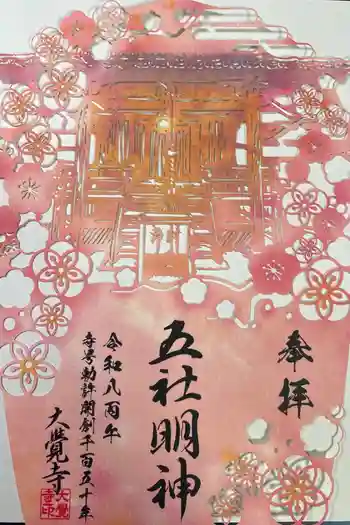 奉拝
五社明神
令和八丙午
寺号勅許開創千百五十年
大覺寺
大覺寺印